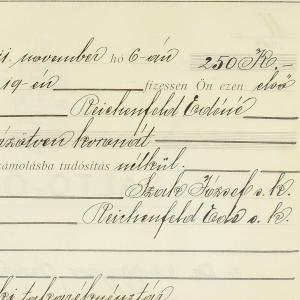 november hó 6-án 250 K.-
19-én fizessen Ön ezen első
Reichenfeld Edéné
ázötven koronát
zámolásba tudósítás nélkül.
Szak József s. k.
Reichenfeld Ede s. k.
ki takarékpénztár